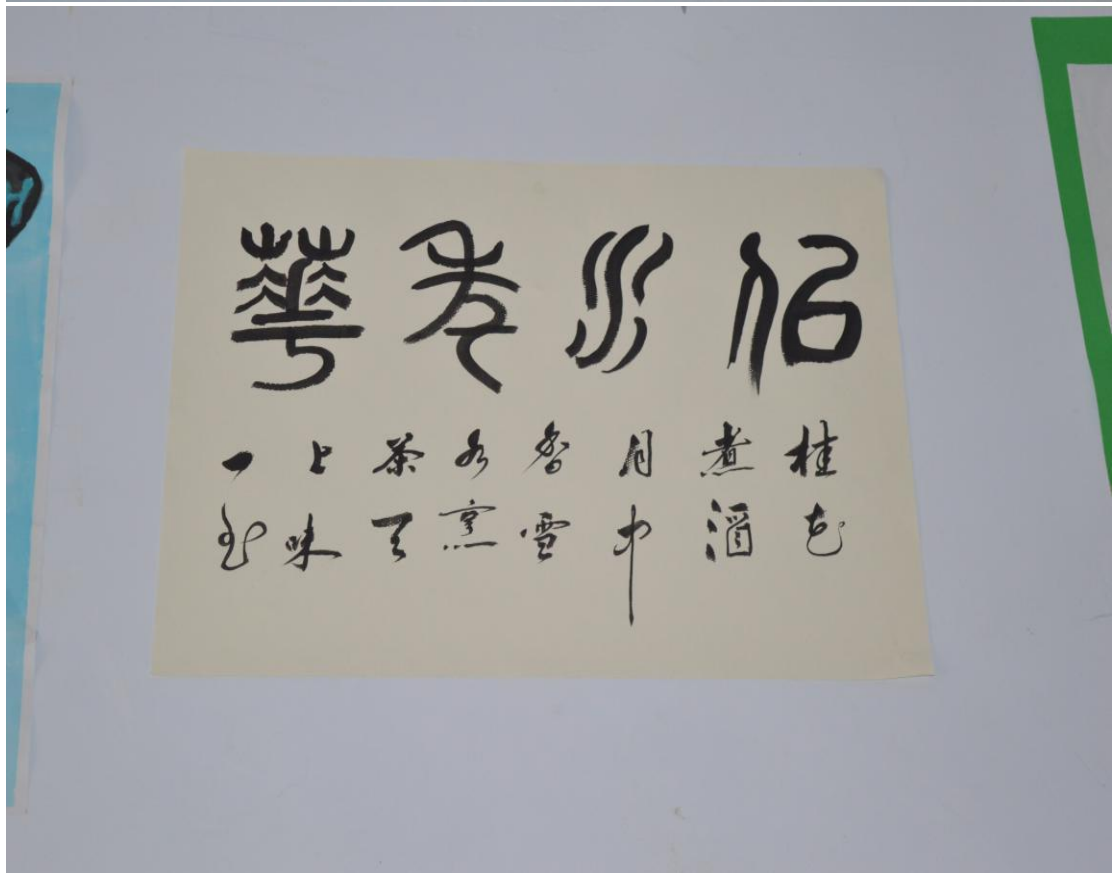 似水年華
桂花
煮酒
月中
香雪
水烹
茶天
上味
一